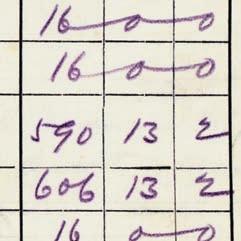 16 0 0
16 0 0
590 13 2
606 13 2
16 0 0